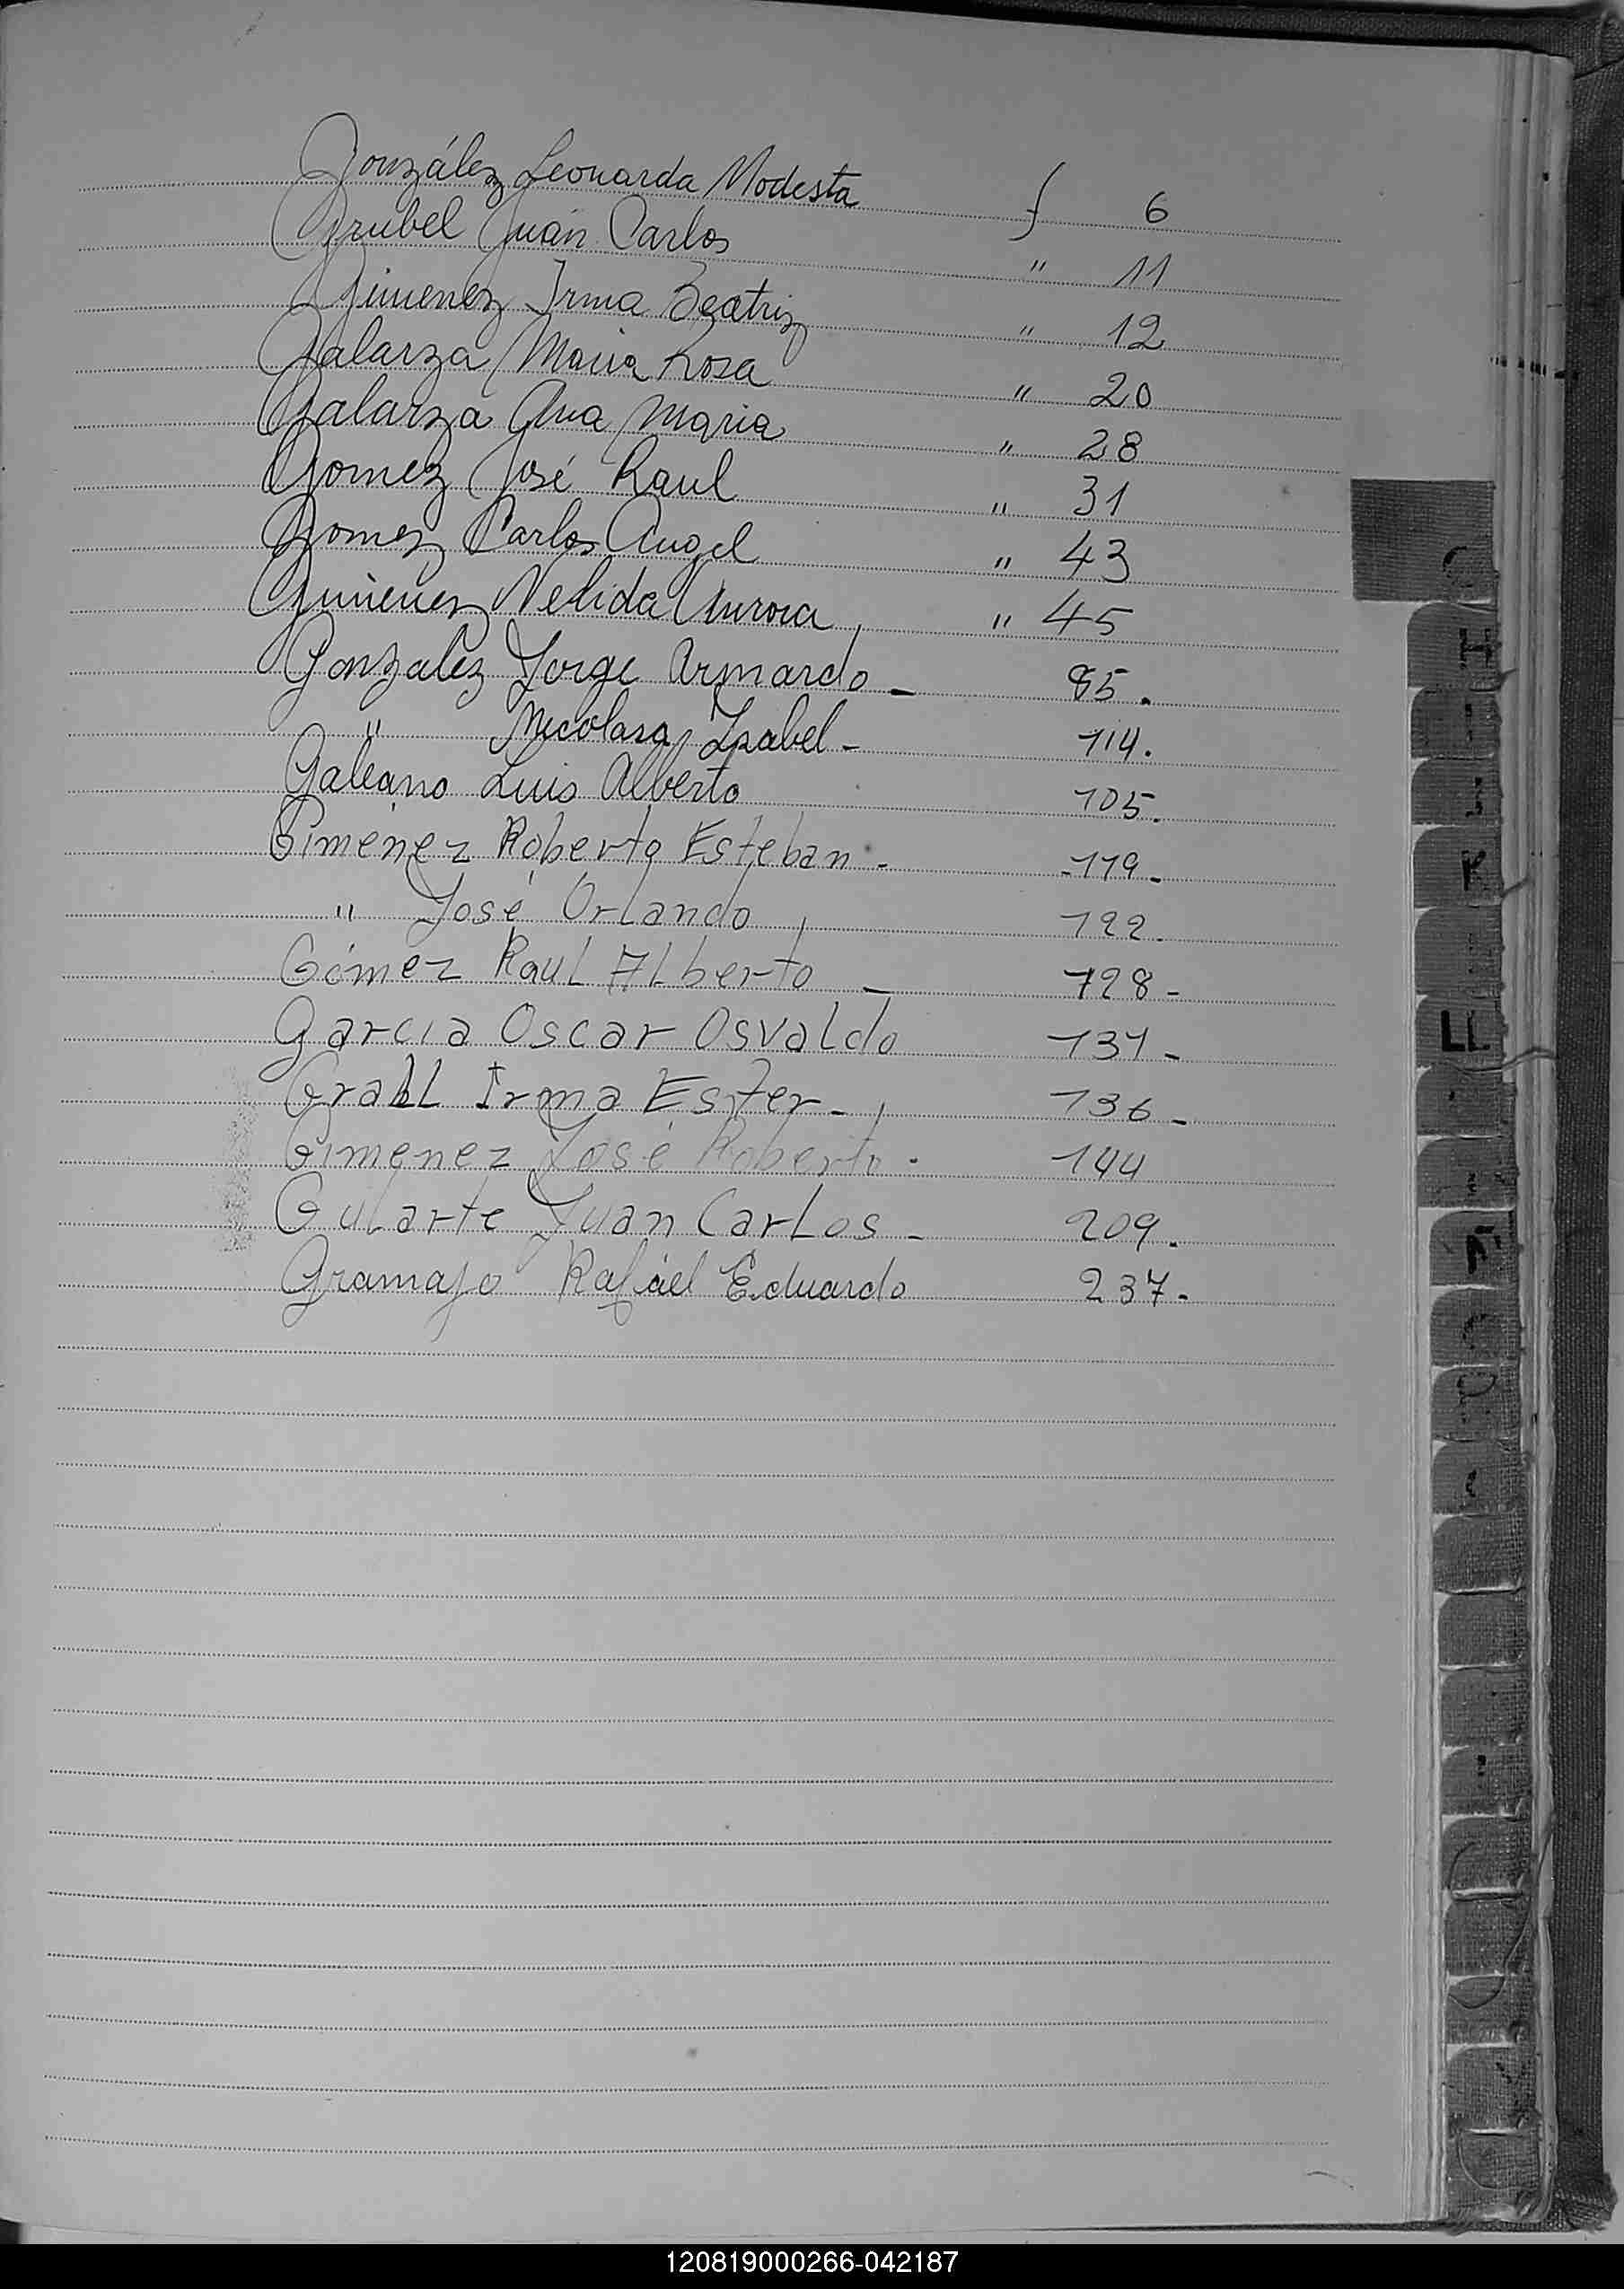 González Leonarda Modesta f 6
Grubel Juan Carlos " 11
Gimenez Irma Beatriz " 12
Galarza Maria Rosa " 20
Galarza Ana Maria " 28
Gomez José Raul " 31
Gomez Carlos Angel " 43
Gimenez Nelida Aurora " 45
Gonzalez Jorge Armando - 85.
" Nicolasa Isabel - 114.
Galeano Luis Alberto 105.
Gimenez Roberto Esteban - 119-
" José Orlando 122.
Gómez Raul Alberto - 128-
Garcia Oscar Osvaldo 131-
Grabl Irma Ester - 136-
Gimenez José Roberto - 144
Gularte Juan Carlos - 209.
Gramajo Rafael Eduardo 237-
LL
120819000266-042187